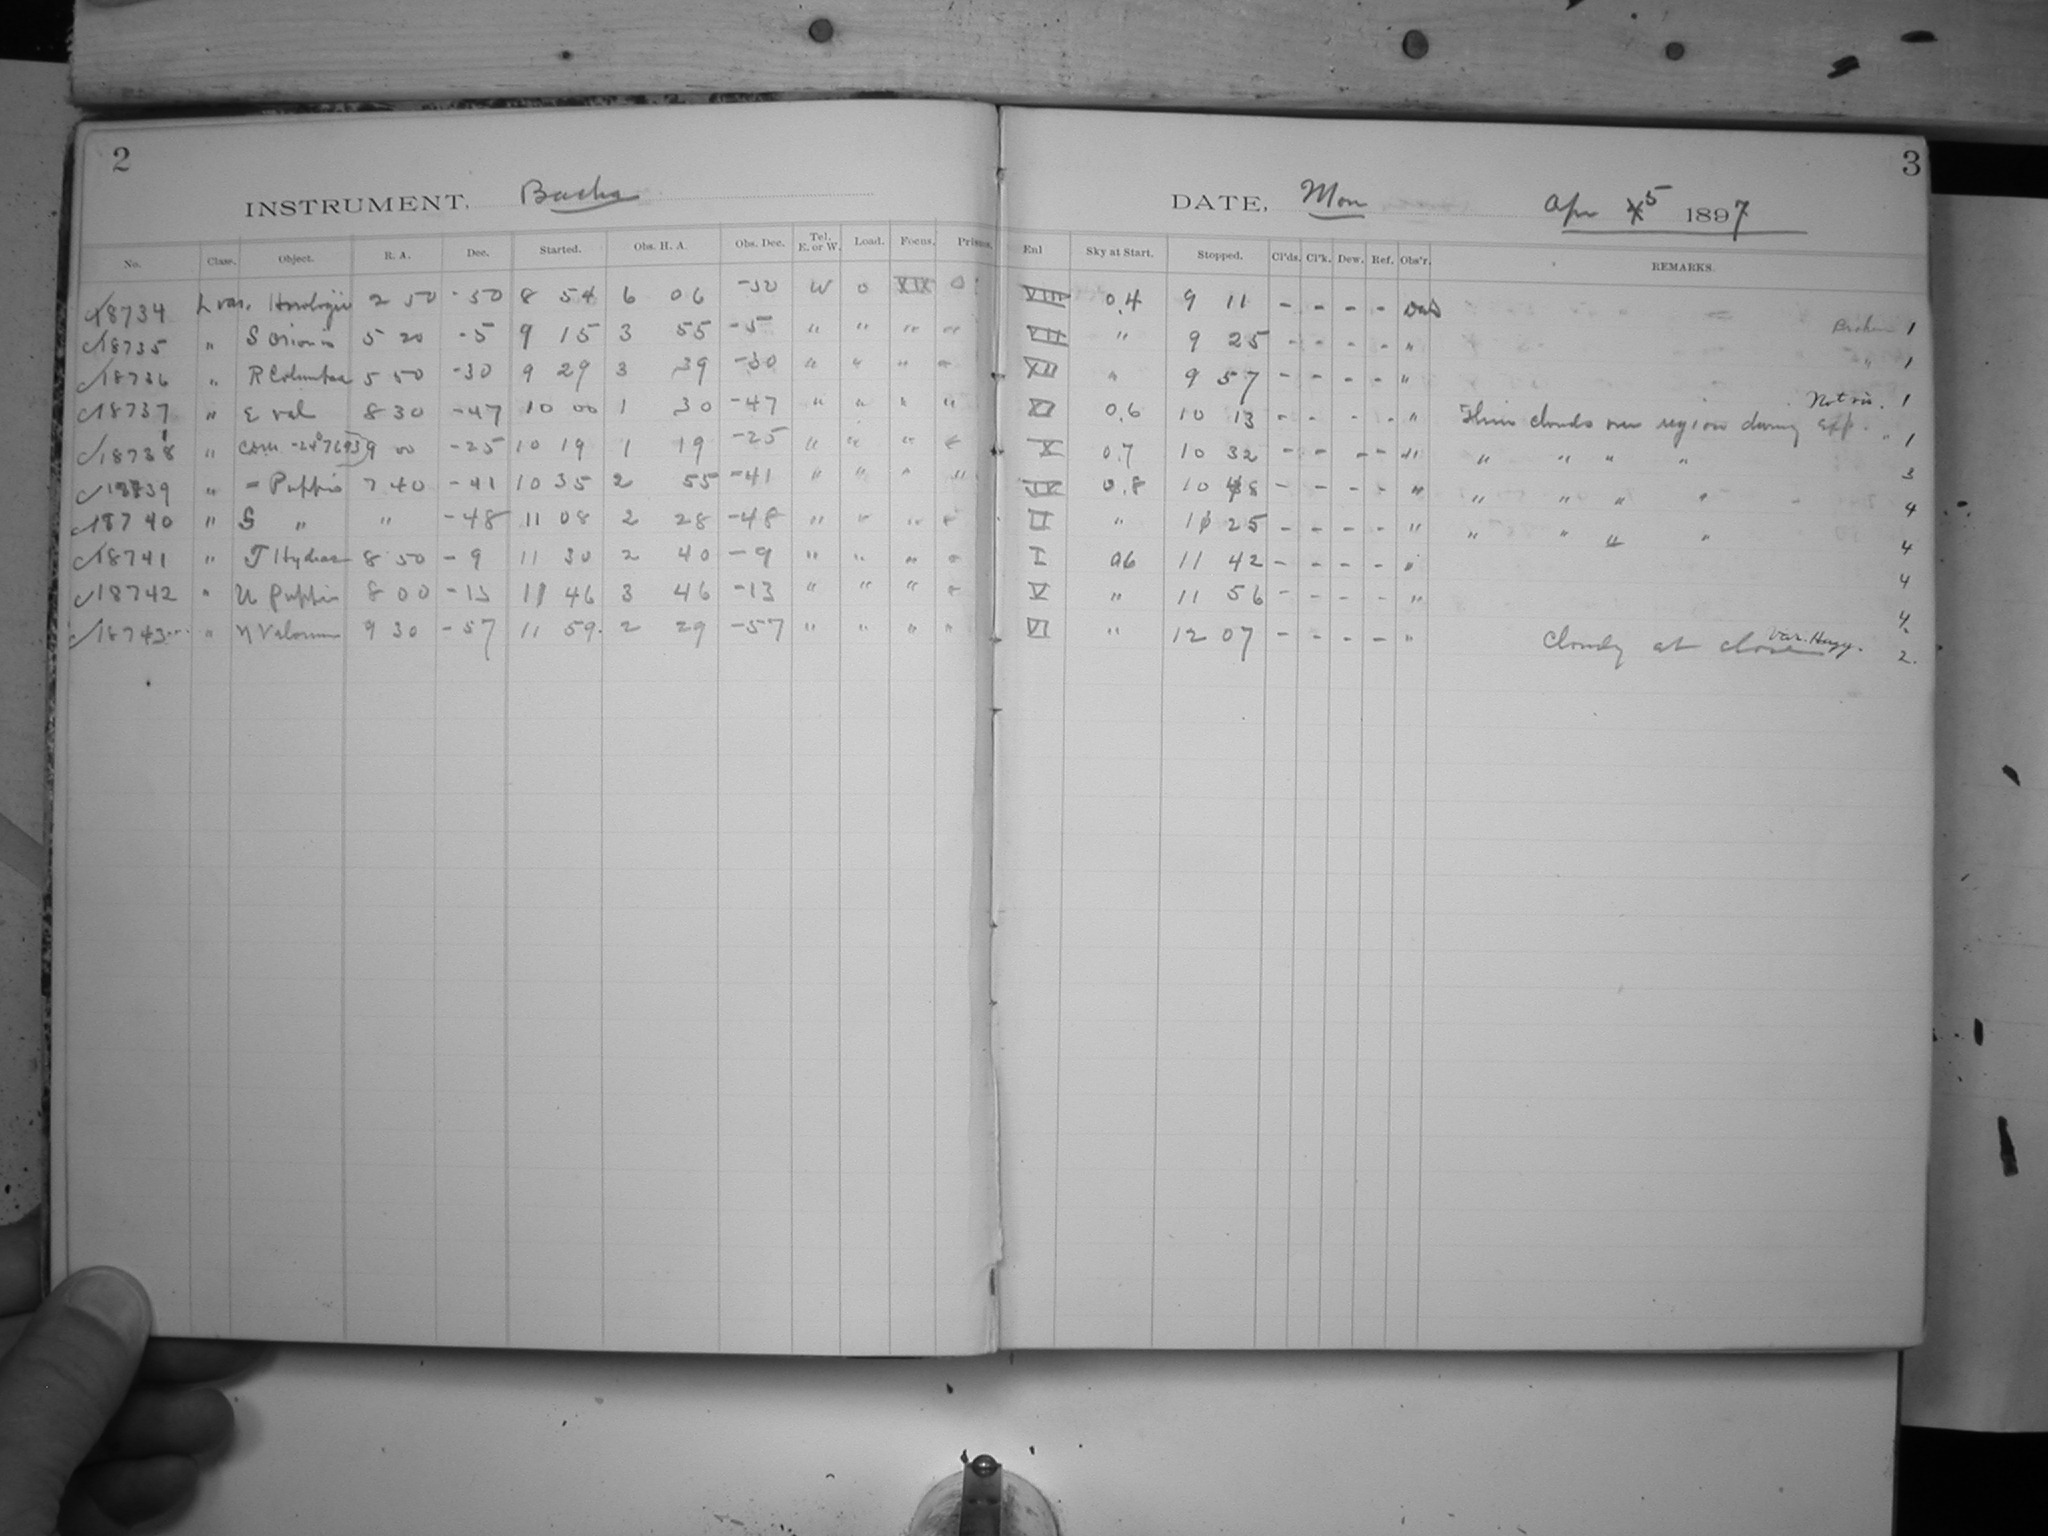 2
INSTRUMENT, Bache
No. Class. Object. R. A. Dec. Started. Obs. H. A. Obs. Dec. Tel. E. or W. Load. Focus. Prisms.
18734 L var. Horologii 2 50 -50 8 54 6 06 -50 W 0 0
18735 " S Orionis 5 20 -5 9 15 3 55 -5 " " " "
18736 " R Columbae 5 50 -30 9 29 3 39 -30 " " " "
18737 " 8 30 -47 10 00 1 30 -47 " " " "
18738 " -24°7693 9 00 -25 10 19 1 19 -25 " " " "
18739 " - Puppis 7 40 -41 10 35 2 55 -41 " " " "
18740 " S " " -48 11 08 2 28 -48 " " " "
18741 " T Hydrae 8 50 -9 11 30 2 40 -9 " " " "
18742 " U Puppis 8 00 -13 11 46 3 46 -13 " " " "
18743 " N Velorum 9 30 -57 11 59 2 29 -57 " " " "
3
DATE, Mon Apr 5 1897
Enl Sky at Start. Stopped. Cl'ds. Cl'k. Dew. Ref. Obs'r. REMARKS.
VIII 0.4 9 11 - - - - Broken 1
" 9 25 - - - - " " 1
XII " 9 57 - - - - " Not vis. 1
XI 0.6 10 13 - - - - " Thin clouds over region during exp. " 1
X 0.7 10 32 - - - - " " " " " 3
0.8 10 48 - - - - " " " " " 4
II " 11 25 - - - - " " " " " 4
I 06 11 42 - - - - " 4
V " 11 56 - - - - " 4
VI " 12 07 - - - - " Cloudy at close Var. 2.